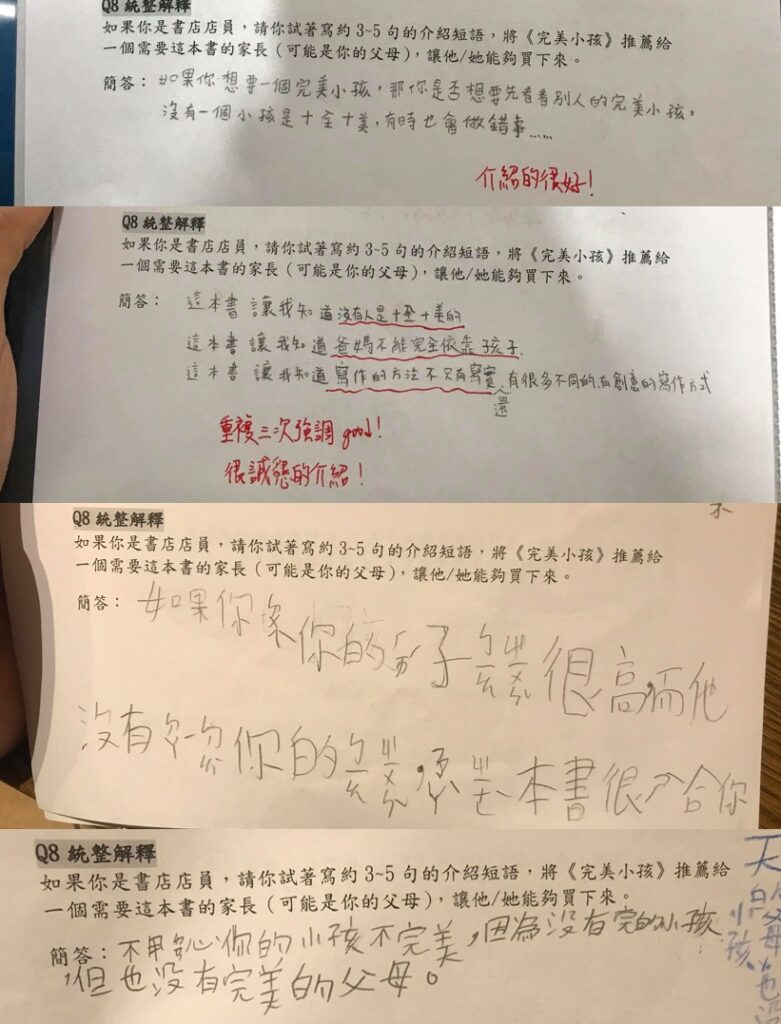 Q8 統整解釋
如果你是書店店員，請你試著寫約 3~5 句的介紹短語，將《完美小孩》推薦給
一個需要這本書的家長（可能是你的父母），讓他/她能夠買下來。
簡答：如果你想要一個完美小孩，那你是否想要先看看別人的完美小孩。
沒有一個小孩是十全十美，有時也會做錯事……
介紹的很好！
Q8 統整解釋
如果你是書店店員，請你試著寫約 3~5 句的介紹短語，將《完美小孩》推薦給
一個需要這本書的家長（可能是你的父母），讓他/她能夠買下來。
簡答：這本書讓我知道沒有人是十全十美的
這本書讓我知道爸媽不能完全依靠孩子.
這本書讓我知道寫作的方法不只有寫實,還有很多不同的,有創意的寫作方式
重複三次強調 good！
很誠懇的介紹！
不
Q8 統整解釋
如果你是書店店員，請你試著寫約 3~5 句的介紹短語，將《完美小孩》推薦給
一個需要這本書的家長（可能是你的父母），讓他/她能夠買下來。
簡答：如果你 你的 子 很高,而他
沒有 你的 本書很 合你
Q8 統整解釋
如果你是書店店員，請你試著寫約 3~5 句的介紹短語，將《完美小孩》推薦給
一個需要這本書的家長（可能是你的父母），讓他/她能夠買下來。
簡答：不用 心你的小孩不完美，因為沒有完的小孩
，但也沒有完美的父母。
天
父母
小孩 也沒